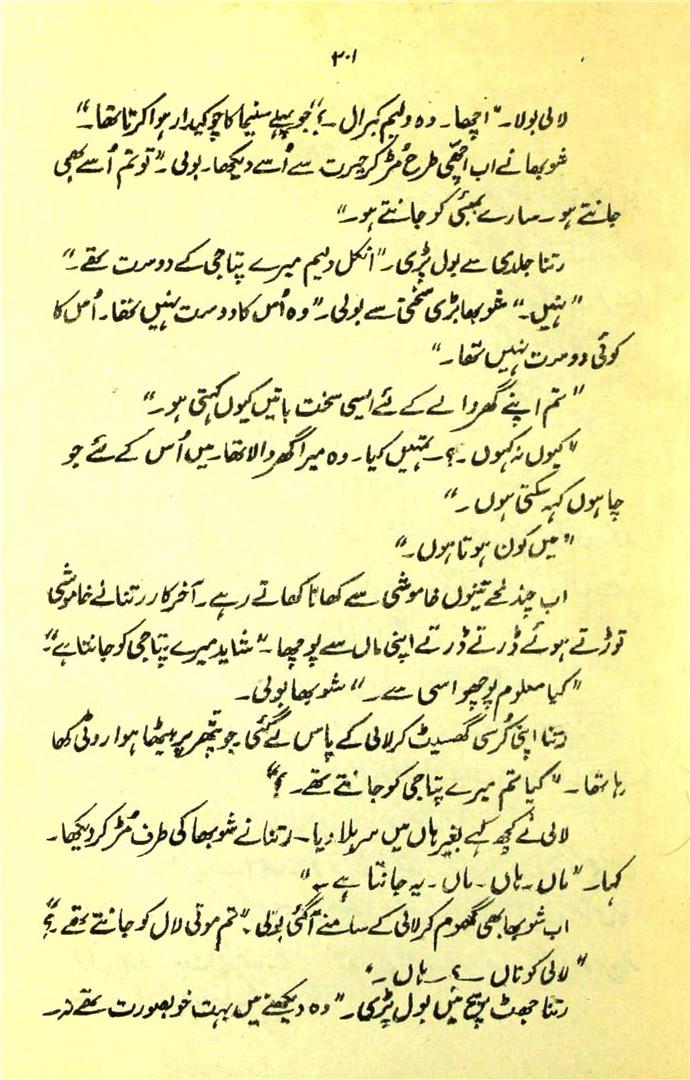 ۳۰۱
لالی بولا۔ "اچھا۔ وہ ولیم کبرال۔؟ جو پہلے سنیما کا چوکیدار ہوا کرتا تھا۔"
شوبھا نے اب اچھی طرح مُڑ کر حیرت سے اُسے دیکھا۔ بولی۔ "تو تم اُسے بھی
جانتے ہو۔ سارے بمبئی کو جانتے ہو۔"
رتنا جلدی سے بول پڑی۔ "انکل ولیم میرے پتاجی کے دوست تھے۔"
"نہیں۔" شوبھا بڑی سختی سے بولی۔ "وہ اُس کا دوست نہیں تھا۔ اُس کا
کوئی دوست نہیں تھا۔"
"تم اپنے گھر والے کے لئے ایسی سخت باتیں کیوں کہتی ہو۔"
"کیوں نہ کہوں۔؟ تمہیں کیا۔ وہ میرا گھر والا تھا۔ میں اُس کے لئے جو
چاہوں کہہ سکتی ہوں۔"
"میں کون ہوتا ہوں۔"
اب چند لمحے تینوں خاموشی سے کھانا کھاتے رہے۔ آخرکار رتنا نے خاموشی
توڑتے ہوئے ڈرتے ڈرتے اپنی ماں سے پوچھا۔ "شاید میرے پتاجی کو جانتا ہے۔"
"کیا معلوم پوچھو اسی سے۔" شوبھا بولی۔
رتنا اپنی کُرسی گھسیٹ کر لالی کے پاس لے گئی۔ جو پتھر پر بیٹھا ہوا روٹی کھا
رہا تھا۔ "کیا تم میرے پتاجی کو جانتے تھے۔؟"
لالی نے کچھ کہے بغیر ہاں میں سر ہلا دیا۔ رتنا نے شوبھا کی طرف مُڑ کر دیکھا۔
کہا۔ "ماں۔ ہاں۔ ماں۔ یہ جانتا ہے۔"
اب شوبھا بھی گھوم کر لالی کے سامنے آ گئی بولی۔ "تم موتی لال کو جانتے تھے۔؟"
"لالی کو ناں۔؟ ہاں۔"
رتنا جھٹ بیچ میں بول پڑی۔ "وہ دیکھنے میں بہت خوبصورت تھے نہ۔